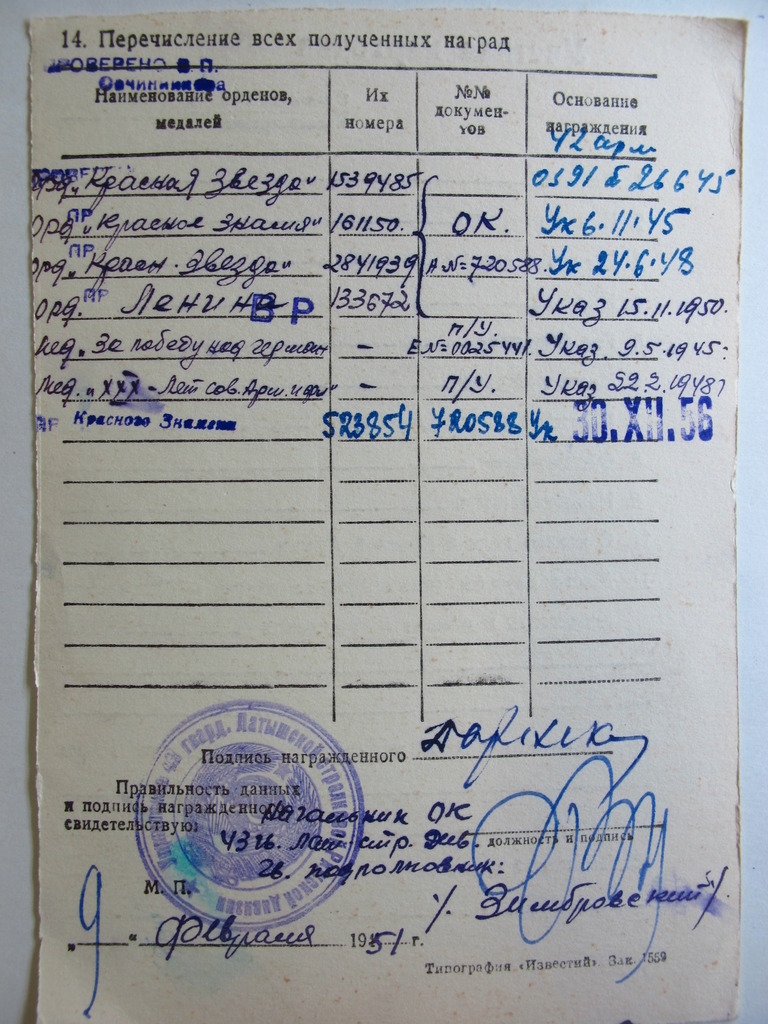 14. Перечисление всех полученных наград
ПРОВЕРЕНО В. П.
Овчинникова
Наименование орденов, медалей
Их номера
№№ документов
Основание награждения
42 арм
Орд. „Красная Звезда“ 1539485 0191 26 6 45
ПР
Орд. „Красное знамя“ 161150. ОК. Ук 6.11.45
ПР
Орд. „Красн. Звезда“ 2841939 А №=720588. Ук 24.6.48
ПР
Орд. Ленина 133672 Указ 15.11.1950.
ВР
п/у.
Мед. „За победу над герман Е №=0025441. Указ. 9.5.1945.
Мед. „XXX - Лет сов. Арм. и фл“ - п/у. Указ 22.2.1948
ПР Красного Знамени 523854 720588 Ук 30.XII.56
Подпись награжденного
Правильность данных
и подпись награжденного
свидетельствую:
Начальник ОК
43 гв. Лат. стр. див.
должность и подпись
гв. подполковник:
М. П.
/. Зимбровский /.
„9“ Февраля 1951 г.
43 гвард. Латышской стрелковой дивизии
Типография «Известия». Зак. 1559